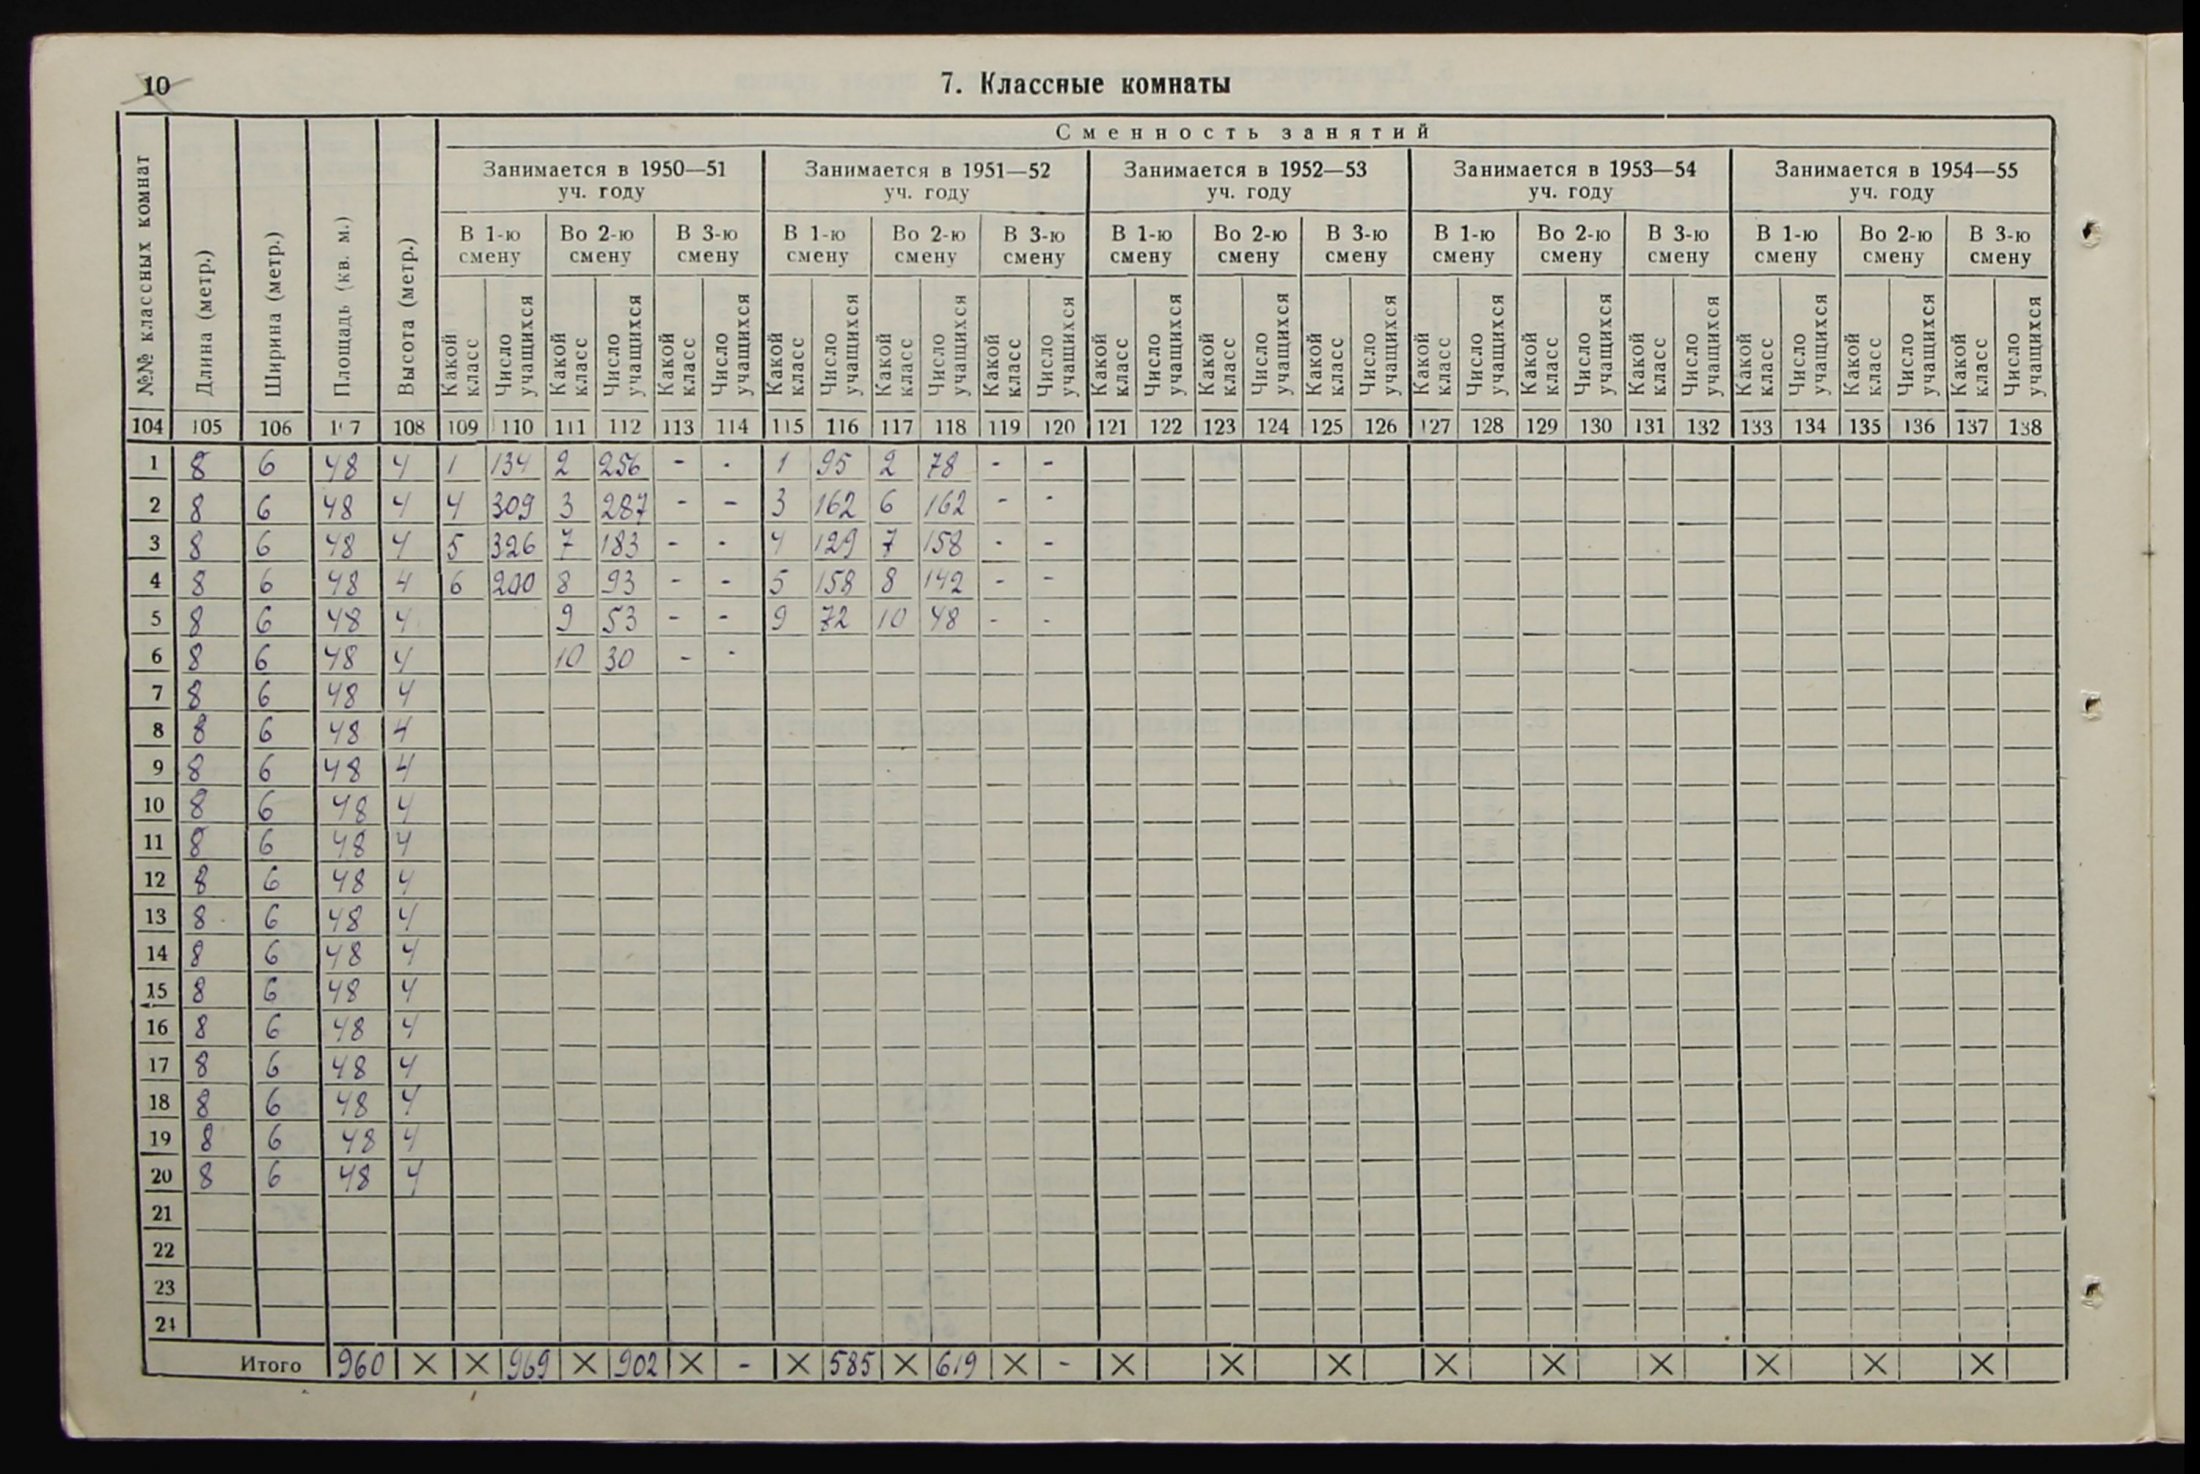 10
7. Классные комнаты
№№ классных комнат Длина (метр.) Ширина (метр.) Площадь (кв. м.) Высота (метр.) Сменность занятий
Занимается в 1950—51 уч. году Занимается в 1951—52 уч. году Занимается в 1952—53 уч. году Занимается в 1953—54 уч. году Занимается в 1954—55 уч. году
В 1-ю смену Во 2-ю смену В 3-ю смену В 1-ю смену Во 2-ю смену В 3-ю смену В 1-ю смену Во 2-ю смену В 3-ю смену В 1-ю смену Во 2-ю смену В 3-ю смену В 1-ю смену Во 2-ю смену В 3-ю смену
Какой класс Число учащихся Какой класс Число учащихся Какой класс Число учащихся Какой класс Число учащихся Какой класс Число учащихся Какой класс Число учащихся Какой класс Число учащихся Какой класс Число учащихся Какой класс Число учащихся Какой класс Число учащихся Какой класс Число учащихся Какой класс Число учащихся Какой класс Число учащихся Какой класс Число учащихся Какой класс Число учащихся
104 105 106 107 108 109 110 111 112 113 114 115 116 117 118 119 120 121 122 123 124 125 126 127 128 129 130 131 132 133 134 135 136 137 138
1 8 6 48 4 1 134 2 256 - - 1 95 2 78 - -
2 8 6 48 4 4 309 3 287 - - 3 162 6 162 - -
3 8 6 48 4 5 326 7 183 - - 4 129 7 158 - -
4 8 6 48 4 6 200 8 93 - - 5 158 8 142 - -
5 8 6 48 4 9 53 - - 9 72 10 48 - -
6 8 6 48 4 10 30 - -
7 8 6 48 4
8 8 6 48 4
9 8 6 48 4
10 8 6 48 4
11 8 6 48 4
12 8 6 48 4
13 8 6 48 4
14 8 6 48 4
15 8 6 48 4
16 8 6 48 4
17 8 6 48 4
18 8 6 48 4
19 8 6 48 4
20 8 6 48 4
21
22
23
24
Итого 960 × × 969 × 902 × - × 585 × 619 × - × × × × × × × × ×